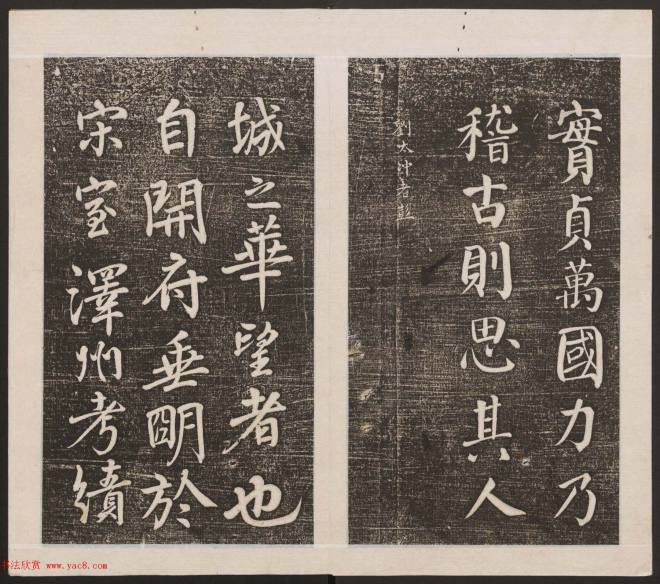 實貞萬國力乃
稽古則思其人
劉太冲者彭
城之華望者也
自開府垂明於
宋室澤州考績
书法欣赏 www.yac8.com